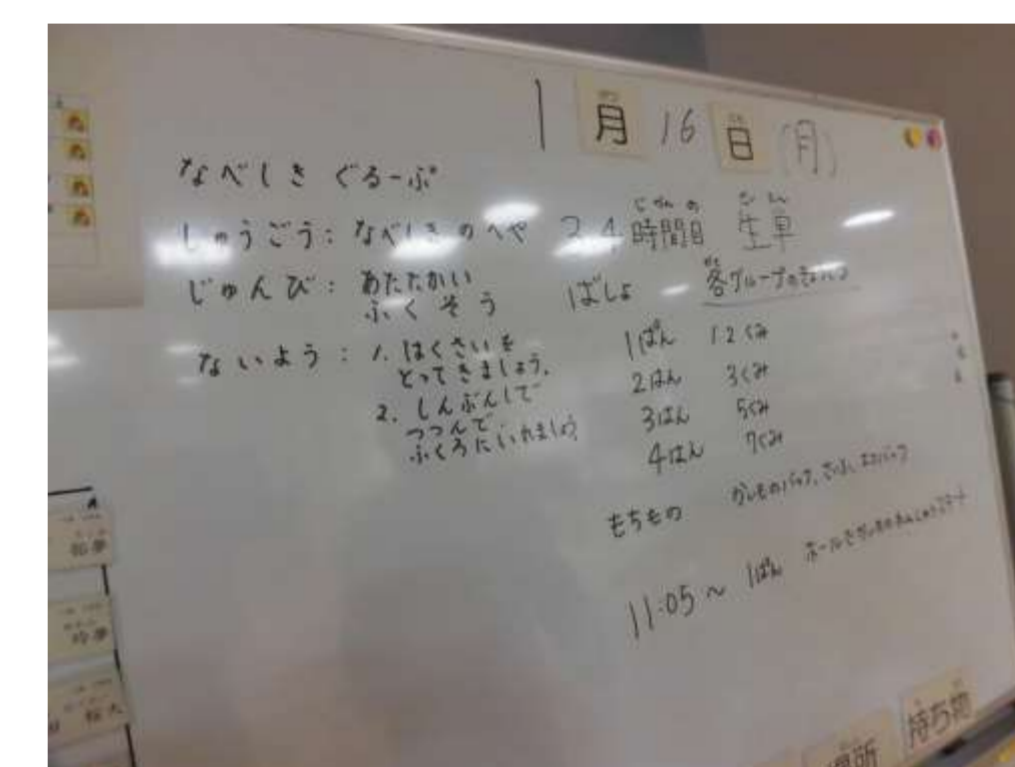 1月16日(月)
なべしき ぐるーぷ
しゅうごう: なべしきのへや
じゅんび: あたたかい
ふくそう
ないよう: 1. はくさいを
とってきましょう.
2. しんぶんしで
つつんで
ふくろにいれましょう.
3,4,時間目 生単
じかんめ せいたん
ばしょ 各グループの
1ぱん 1 2くみ
2はん 3くみ
3はん 5くみ
4はん 7くみ
もちもの かいものバッグ、さいふ、エコバッグ
11:05~ 1ぱん ホールでかいもののれんしゅうスタート
持ち物